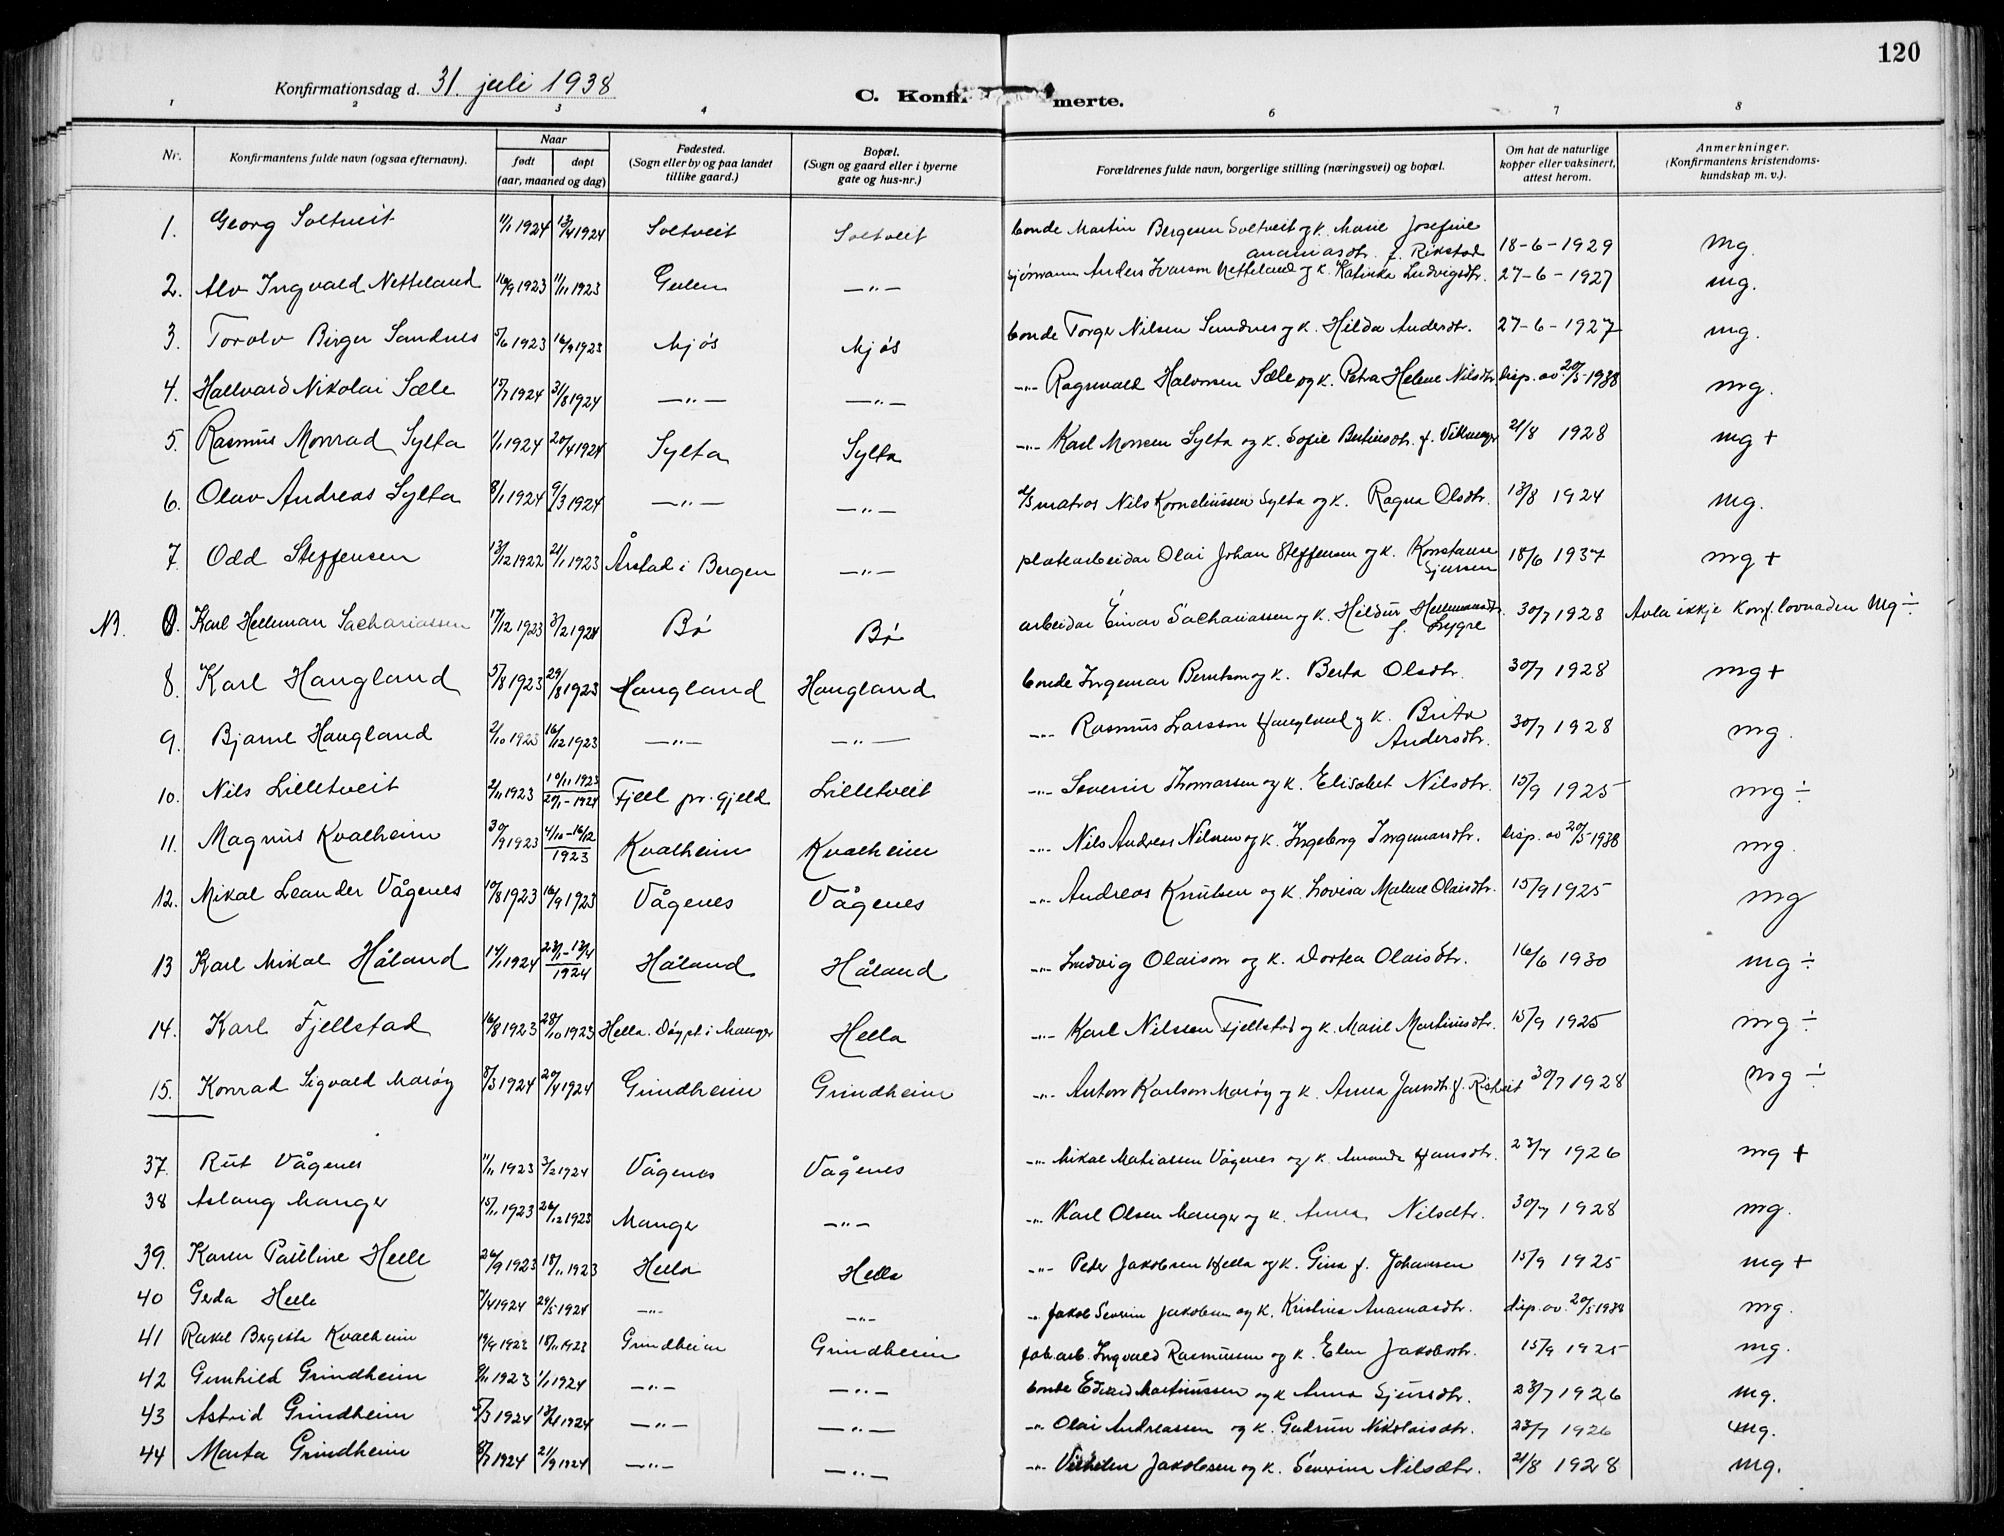 120
Konfirmationsdag d. 31. juli 1938
C. Konfir merte.
1 2 3 4 6 7 8
Nr. Konfirmantens fulde navn (ogsaa efternavn). Naar født døpt (aar, maaned og dag) Fødested. (Sogn eller by og paa landet tillike gaard.) Bopæl. (Sogn og gaard eller i byerne gate og hus-nr.) Forældrenes fulde navn, borgerlige stilling (næringsvei) og bopæl. Om hat de naturlige kopper eller vaksinert, attest herom. Anmerkninger. (Konfirmantens kristendoms-kundskap m. v.).
1. Georg Soltveit 11/1 1924 13/4 1924 Soltveit Soltveit bonde Martin Bergesen Soltveit og k. Marie Josefine Ananiasdtr. f. Rikstad 18-6-1929 mg.
2. Alv Ingvald Netteland 16/9 1923 11/11 1923 Gulen —"— sjømann Anders Ivarson Netteland og k. Katinka Ludvigsdtr. 27-6-1927 mg.
3. Torolv Birger Sandnes 5/6 1923 16/9 1923 Mjøs Mjøs bonde Torger Nilsen Sandnes og k. Hilda Andersdtr. 27-6-1927 mg.
4. Hallvard Nikolai Sæle 15/7 1924 31/8 1924 —"— —"— -"- Ragnvald Halvorsen Sæle og k. Petra Helene Nilsdtr. disp. av 20/5-1938 mg.
5. Rasmus Monrad Sylta 1/1 1924 20/4 1924 Sylta Sylta -"- Karl Monsen Sylta og k. Sofie Bertinsdtr. f. 21/8 1928 mg +
6. Olav Andreas Sylta 8/1 1924 9/3 1924 —"— —"— matros Nils Korneliussen Sylta og k. Ragna Olsdtr. 13/8 1924 mg.
7. Odd Steffensen 13/12 1922 21/1 1923 Årstad i Bergen —"— platearbeidar Olai Johan Steffensen og k. Konstanse Sjursen 18/6 1937 mg +
NB. 0. Karl Helleman Sachariassen 17/12 1923 3/2 1924 Bø Bø arbeidar Einar Sachariassen og k. Hildur Hellemansdtr. f. Lygre 30/7 1928 Avla ikkje konf. lovnaden Mg ÷
8. Karl Haugland 5/8 1923 29/8 1923 Haugland Haugland bonde Ingemar Berntson og k. Berta Olsdtr. 30/7 1928 mg +
9. Bjarne Haugland 2/10 1923 16/12 1923 —"— —"— -"- Rasmus Larsson Haugland og k. Brita Andersdtr. 30/7 1928 mg.
10. Nils Lilletveit 2/11 1923 10/11 1923 27/1-1924 Fjell pr.gjeld Lilletveit -"- Severin Thomassen og k. Elisabet Nilsdtr. 15/9 1925 mg ÷
11. Magnus Kvalheim 30/9 1923 4/10-16/12 1923 Kvalheim Kvalheim -"- Nils Andreas Nilssen og k. Ingeborg Ingemarsdtr. disp. av 20/5-1938 mg.
12. Mikal Leander Vågenes 10/8 1923 16/9 1923 Vågenes Vågenes -"- Andreas Knutsen og k. Lovisa Malene Olaisdtr. 15/9 1925 mg
13 Karl Mikal Håland 14/1 1924 23/1-13/4 1924 Håland Håland -"- Ludvig Olaison og k. Dortea Olaisdtr. 16/6 1930 mg ÷
14. Karl Fjellstad 16/8 1923 28/10 1923 Hella. Døypt i Manger Hella -"- Karl Nilssen Fjellstad og k. Marie Martinusdtr. 15/9 1925 mg ÷
15. Konrad Sigvald Marøy 8/3 1924 20/4 1924 Grindheim Grindheim -"- Anton Karlson Marøy og k. Anna Jansdtr. f. 30/7 1928 mg ÷
37. Rut Vågenes 11/11 1923 3/2 1924 Vågenes Vågenes -"- Mikal Matiassen Vågenes og k. Amanda Hansdtr. 23/7 1926 mg +
38 Aslaug Manger 15/11 1923 26/12 1923 Manger —"— -"- Karl Olsen Manger og k. Anna Nilsdtr. 30/7 1928 mg.
39. Karen Pauline Helle 26/9 1923 18/11 1923 Hella Hella -"- Peder Jakobsen Hella og k. Gina f. Johansen 15/9 1925 mg +
40 Gerda Helle 7/4 1924 29/5 1924 —"— —"— -"- Jakob Severin Jakobsen og k. Kristina Ananiasdtr. disp. av. 20/5 1938 mg.
41 Rakel Bergitta Kvalheim 19/9 1923 18/11 1923 Grindheim Grindheim fab.arb. Ingvald Rasmussen og k. Elen Jakobsdtr. 15/9 1925 mg.
42 Gunhild Grindheim 9/11 1923 1/1 1924 —"— —"— bonde Edvard Martinussen og k. Anna Sjursdtr. 23/7 1926 mg.
43 Astrid Grindheim 5/3 1924 13/4 1924 —"— —"— -"- Olai Andreassen og k. Gudrun Nikolaisdtr. 23/7 1926 mg.
44 Marta Grindheim 8/7 1924 21/9 1924 —"— —"— -"- Vilhelm Jakobsen og k. Severine Nilsdtr. 21/8 1928 mg.